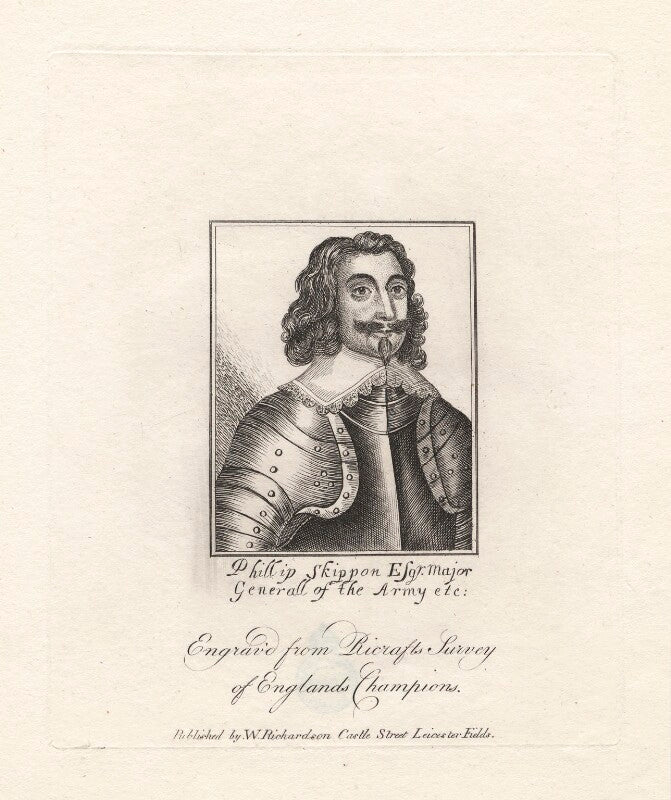 Phillip Skippon Esqr. Major
Generall of the Army etc:
Engrav'd from Ricrafts Survey
of Englands Champions.
Published by W. Richardson Castle Street Leicester Fields.